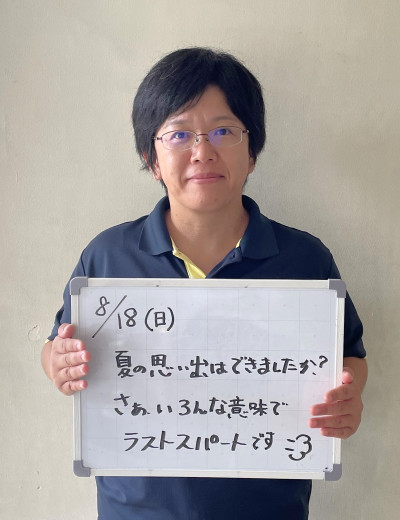 8/18(日)
夏の思い出はできましたか?
さぁ、いろんな意味で
ラストスパートです